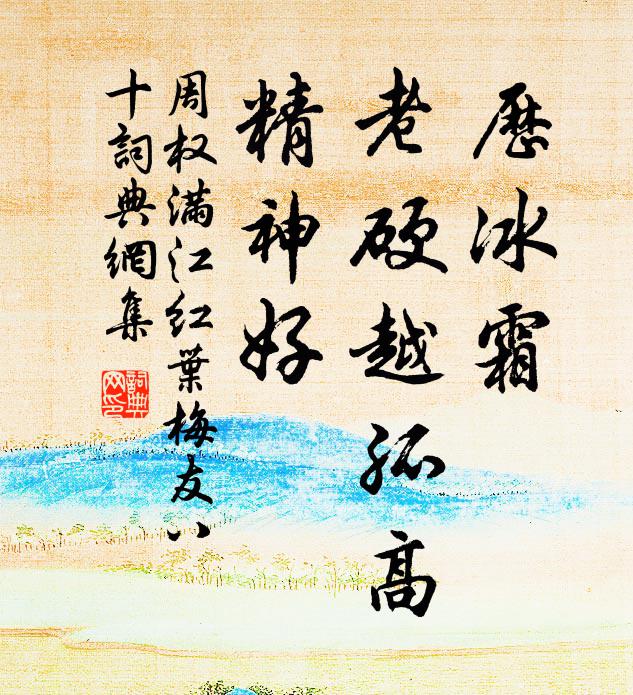 歷冰霜
老硬越孤高
精神好
周权滿江红葉梅友八
十詞典網集
詞典网印